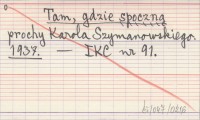 Tam, gdzie spoczną
prochy Karola Szymanowskiego.
1937. — IKC nr 91.